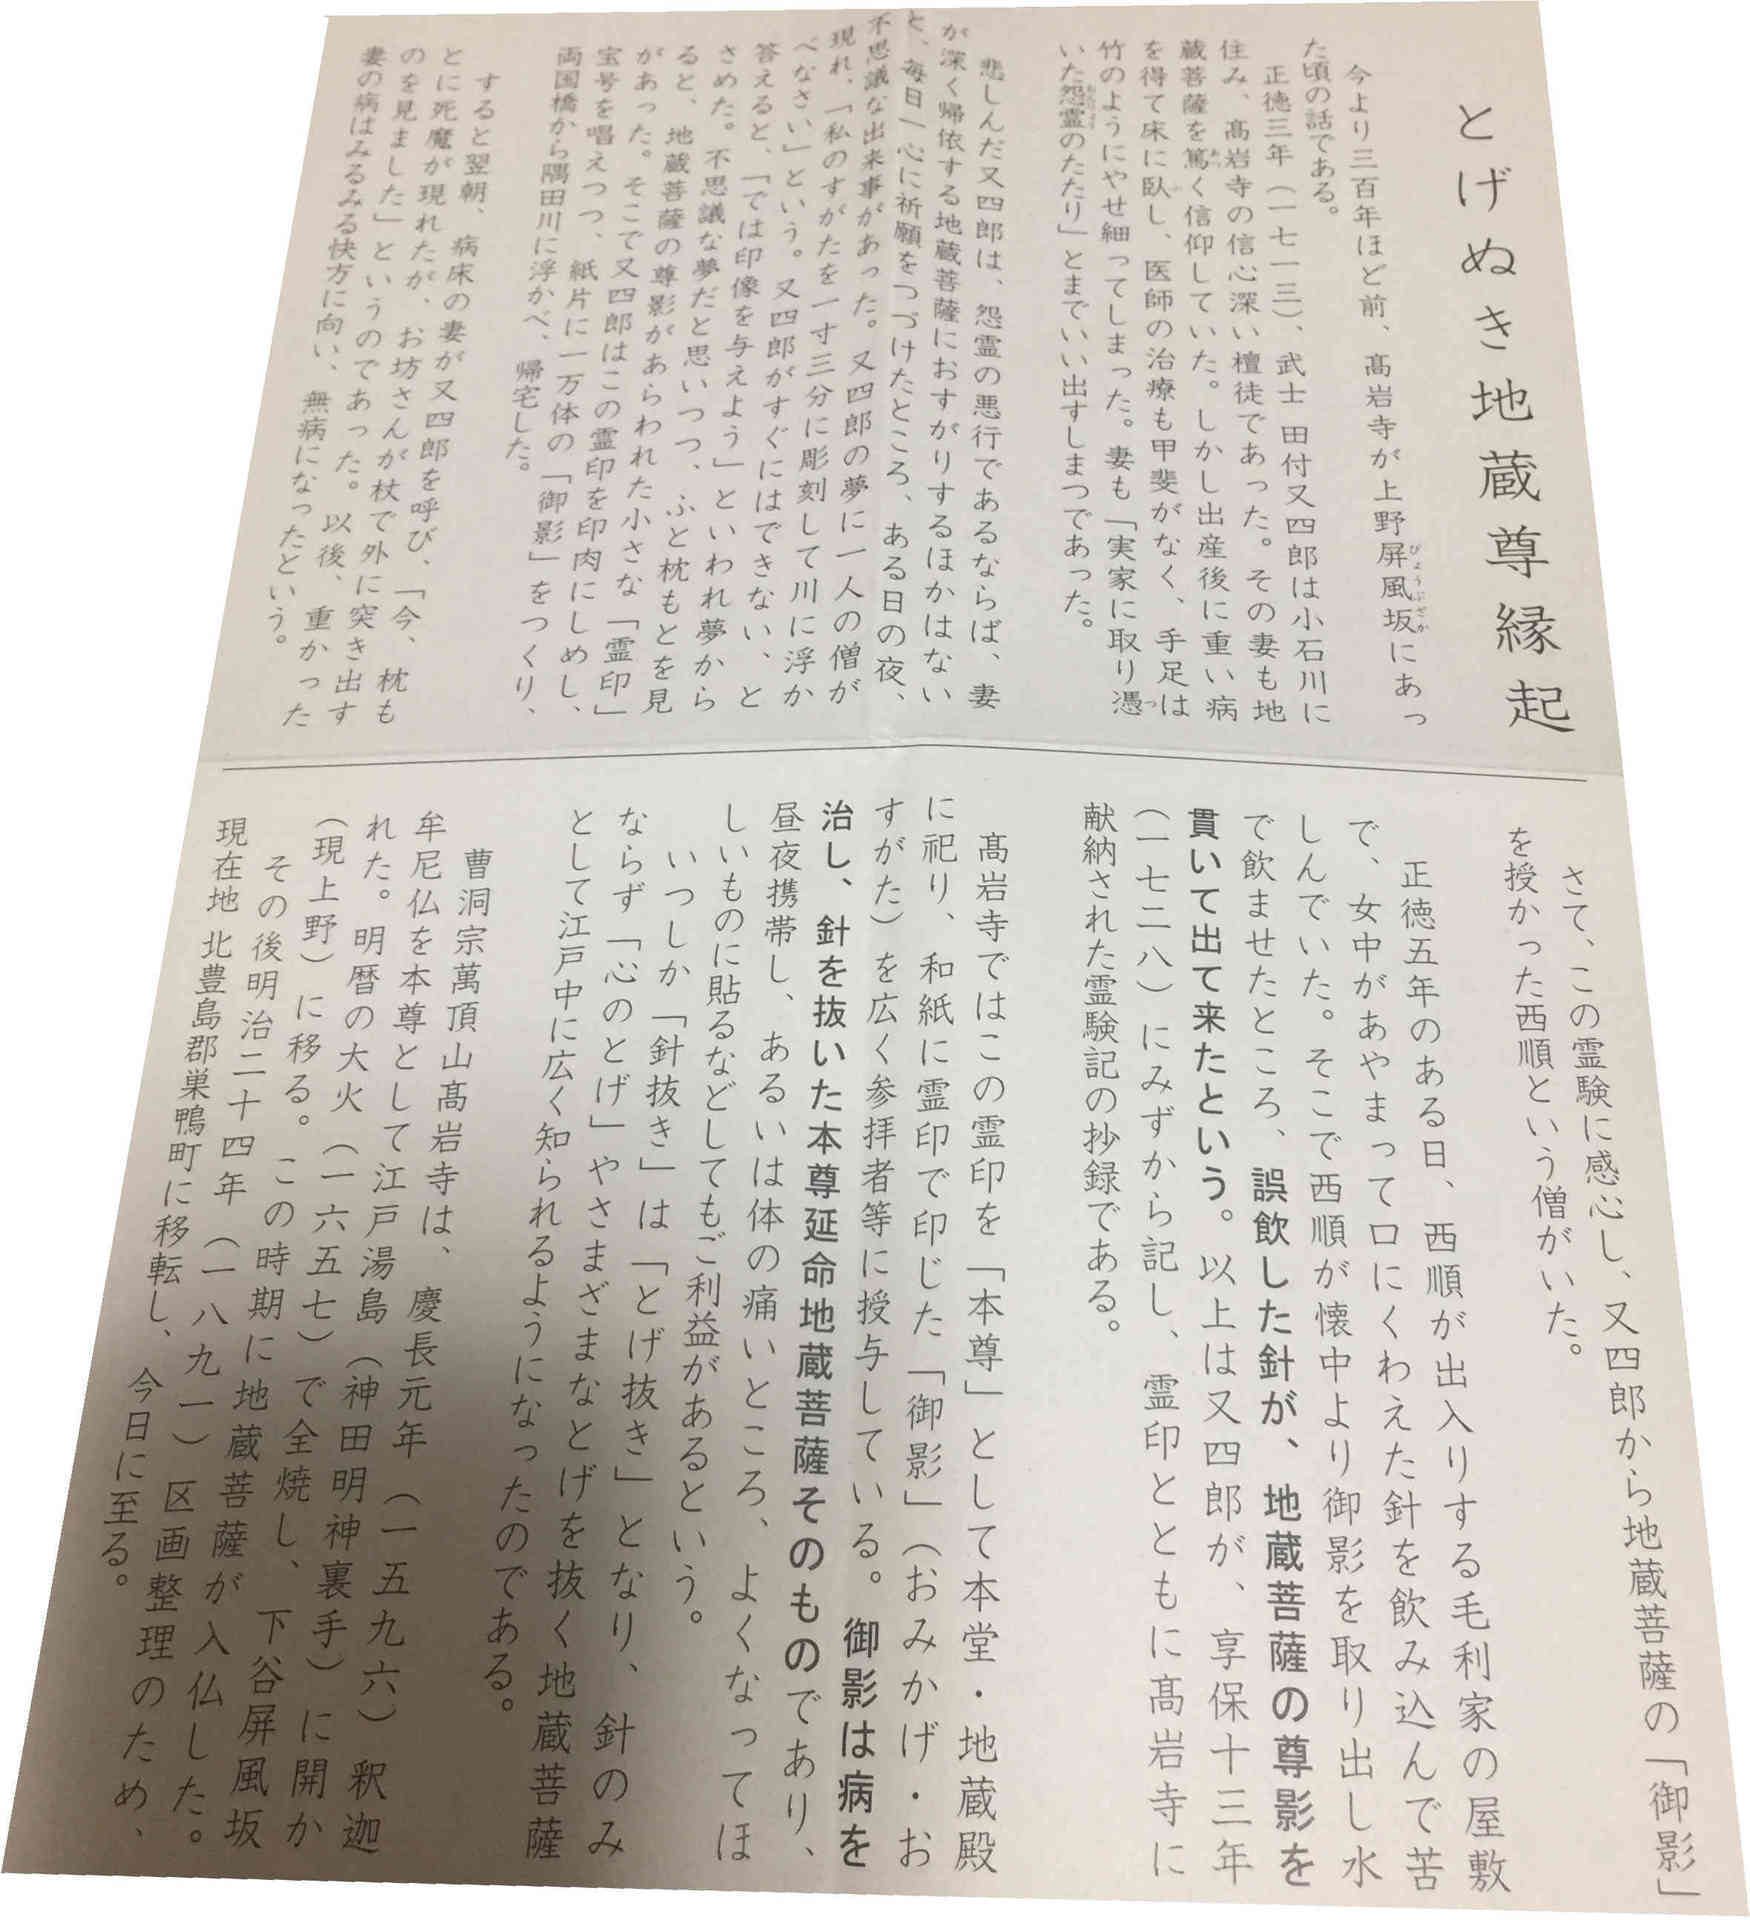 とげぬき地蔵尊縁起
今より三百年ほど前、髙岩寺が上野屏風坂にあっ
びょうぶざか
た頃の話である。
正徳三年（一七一三）、武士 田付又四郎は小石川に
住み、髙岩寺の信心深い檀徒であった。その妻も地
蔵菩薩を篤く信仰していた。しかし出産後に重い病
あつ
を得て床に臥し、医師の治療も甲斐がなく、手足は
竹のようにやせ細ってしまった。妻も「実家に取り憑
つ
いた怨霊のたたり」とまでいい出すしまつであった。
悲しんだ又四郎は、怨霊の悪行であるならば、妻
が深く帰依する地蔵菩薩におすがりするほかはない
と、毎日一心に祈願をつづけたところ、ある日の夜、
不思議な出来事があった。又四郎の夢に一人の僧が
現れ、「私のすがたを一寸三分に彫刻して川に浮か
べなさい」という。又四郎がすぐにはできない、と
答えると、「では印像を与えよう」といわれ夢から
さめた。不思議な夢だと思いつつ、ふと枕もとを見
ると、地蔵菩薩の尊影があらわれた小さな「霊印」
があった。そこで又四郎はこの霊印を印肉にしめし、
宝号を唱えつつ、紙片に一万体の「御影」をつくり、
両国橋から隅田川に浮かべ、帰宅した。
すると翌朝、病床の妻が又四郎を呼び、「今、枕も
とに死魔が現れたが、お坊さんが杖で外に突き出す
のを見ました」というのであった。以後、重かった
妻の病はみるみる快方に向い、無病になったという。
さて、この霊験に感心し、又四郎から地蔵菩薩の「御影」
を授かった西順という僧がいた。
正徳五年のある日、西順が出入りする毛利家の屋敷
で、女中があやまって口にくわえた針を飲み込んで苦
しんでいた。そこで西順が懐中より御影を取り出し水
で飲ませたところ、誤飲した針が、地蔵菩薩の尊影を
貫いて出て来たという。以上は又四郎が、享保十三年
（一七二八）にみずから記し、霊印とともに髙岩寺に
献納された霊験記の抄録である。
髙岩寺ではこの霊印を「本尊」として本堂・地蔵殿
に祀り、和紙に霊印で印じた「御影」（おみかげ・お
すがた）を広く参拝者等に授与している。御影は病を
治し、針を抜いた本尊延命地蔵菩薩そのものであり、
昼夜携帯し、あるいは体の痛いところ、よくなってほ
しいものに貼るなどしてもご利益があるという。
いつしか「針抜き」は「とげ抜き」となり、針のみ
ならず「心のとげ」やさまざまなとげを抜く地蔵菩薩
として江戸中に広く知られるようになったのである。
曹洞宗萬頂山髙岩寺は、慶長元年（一五九六）釈迦
牟尼仏を本尊として江戸湯島（神田明神裏手）に開か
れた。明暦の大火（一六五七）で全焼し、下谷屏風坂
（現上野）に移る。この時期に地蔵菩薩が入仏した。
その後明治二十四年（一八九一）区画整理のため、
現在地 北豊島郡巣鴨町に移転し、今日に至る。